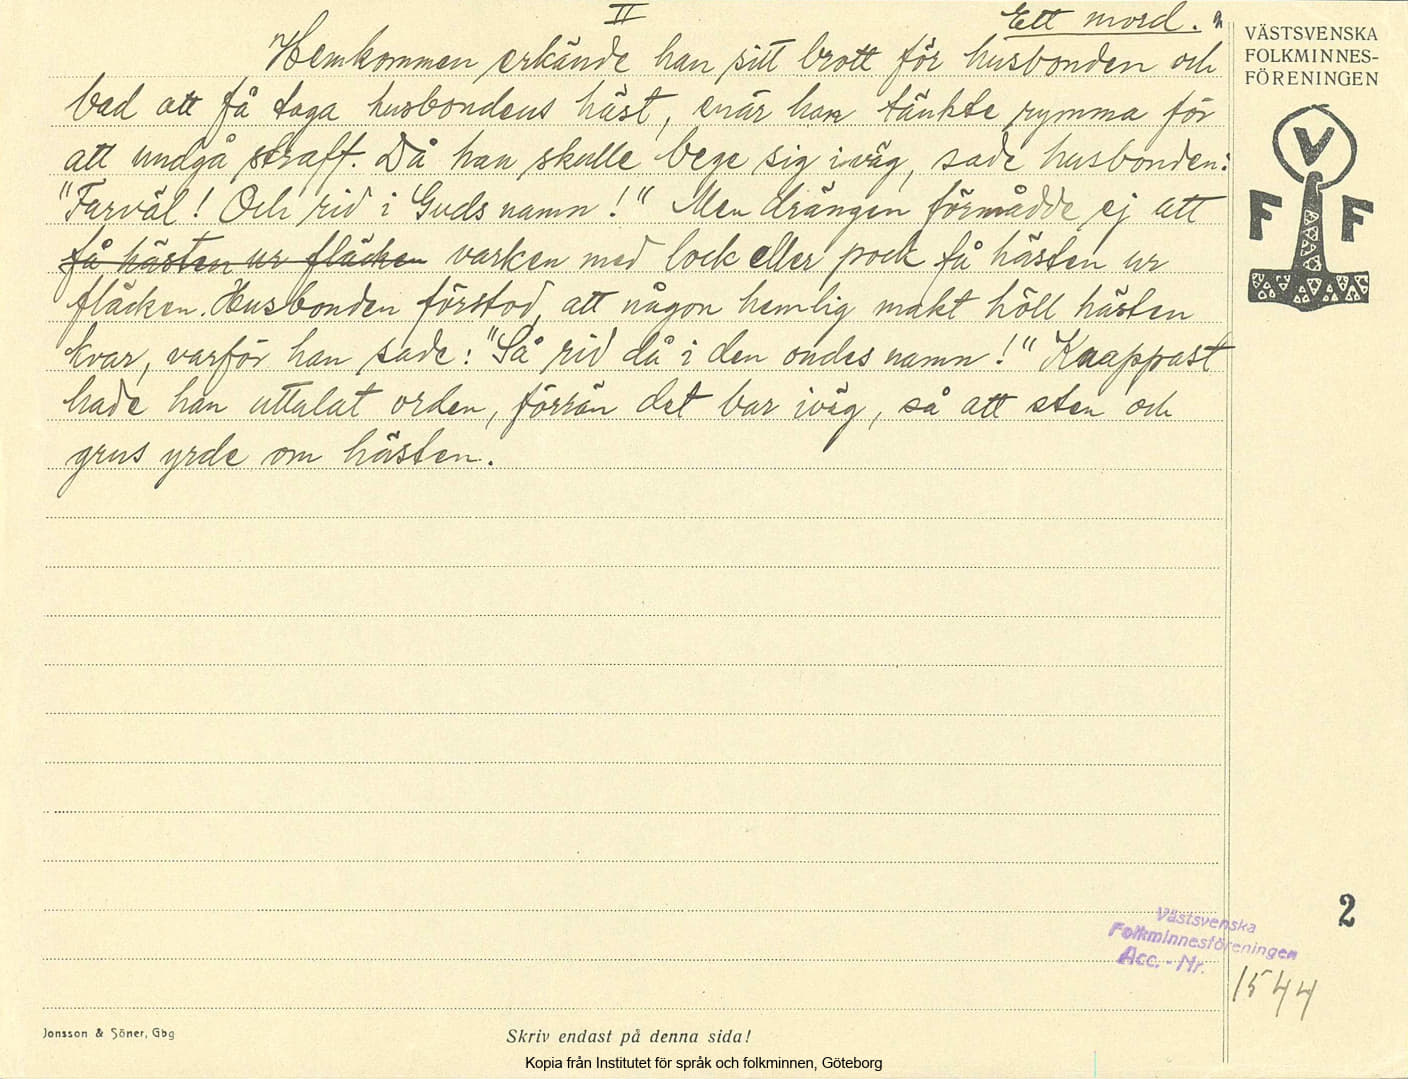 II
Ett mord. 2
Hemkommen erkände han sitt brott för husbonden och
bad att få taga husbondens häst, enär han tänkte rymma för
att undgå straff. Då han skulle bege sig iväg, sade husbonden:
"Farväl! Och rid i Guds namn!" Men drängen förmådde ej att
få hästen ur fläcken varken med lock eller pock få hästen ur
fläcken. Husbonden förstod, att någon hemlig makt höll hästen
kvar, varför han sade: "Så rid då i den ondes namn!" Knappast
hade han uttalat orden, förrän det bar iväg, så att sten och
grus yrde om hästen.
VÄSTSVENSKA
FOLKMINNES-
FÖRENINGEN
V
F F
2
Västsvenska
Folkminnesföreningen
Acc. - Nr. 1544
Jonsson & Söner, Gbg
Skriv endast på denna sida!
Kopia från Institutet för språk och folkminnen, Göteborg